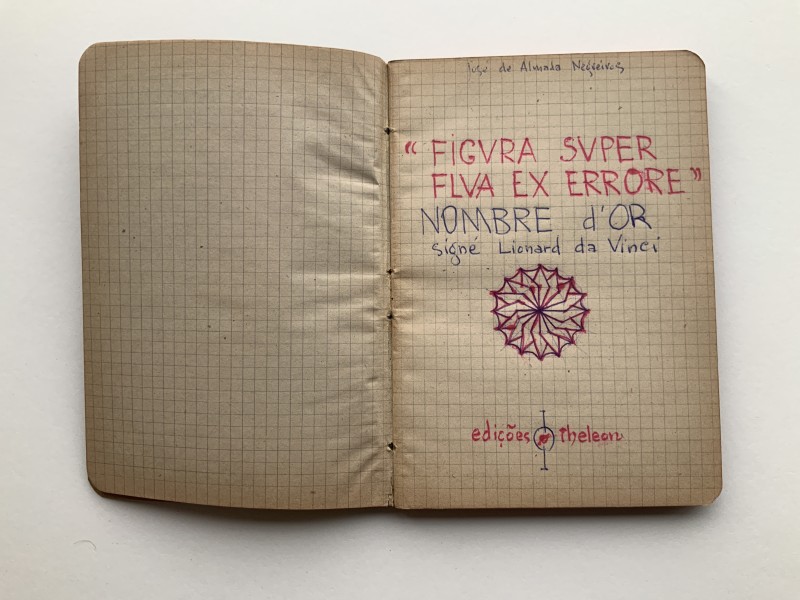 José de Almada Negreiros
“ FIGVRA SVPER
FLVA EX ERRORE”
NOMBRE d'OR
signé Lionard da Vinci
edições theleon